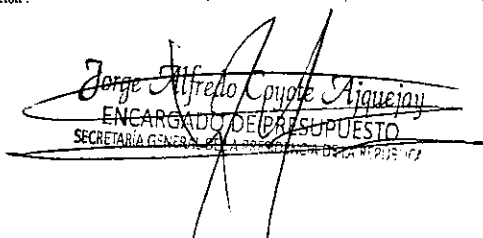 Jorge Alfredo Cpyote Ajquejay
ENCARGADO DE PRESUPUESTO
SECRETARÍA GENERAL DE LA PRESIDENCIA DE LA REPUBLICA